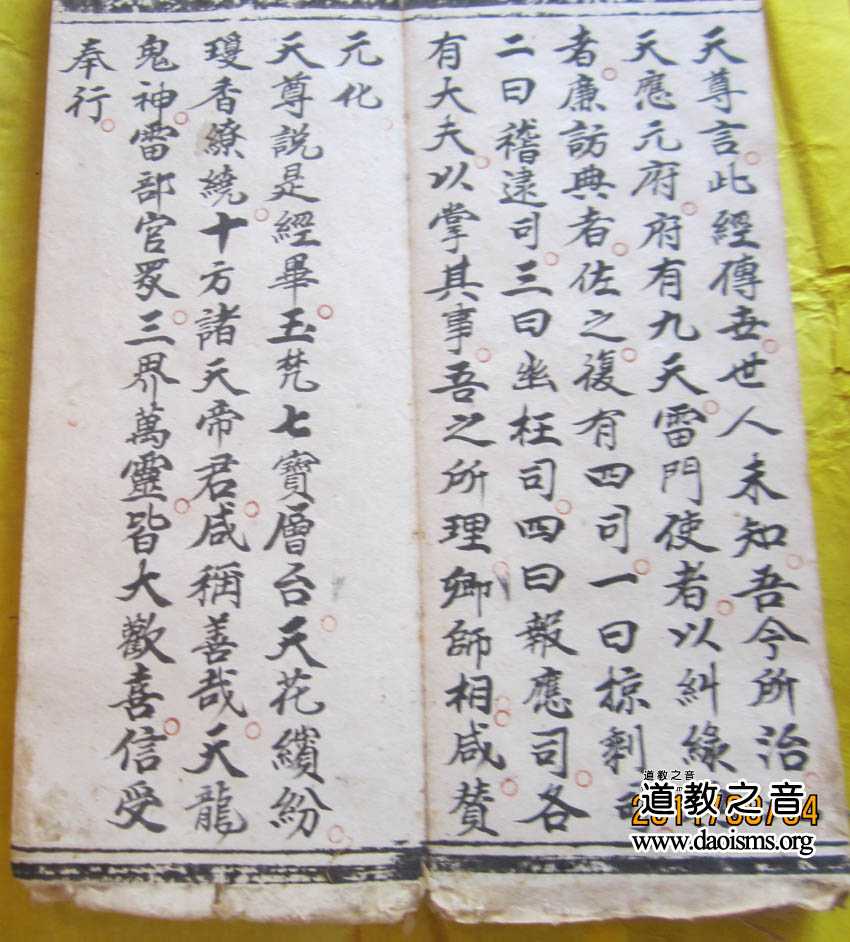 天尊言此經傳世世人未知吾今所治
天應元府府有九天雷門使者以糾緣
者廉訪典者佐之復有四司一曰掠剩
二曰稽逮司三曰幽枉司四曰報應司各
有大夫以掌其事吾之所理卿師相咸贊
元化
天尊說是經畢玉梵七寶層台天花繽紛
瓊香繚繞十方諸天帝君咸稱善哉天龍
鬼神雷部官眾三界萬靈皆大歡喜信受
奉行
道教之音
道教之音
www.daoisms.org